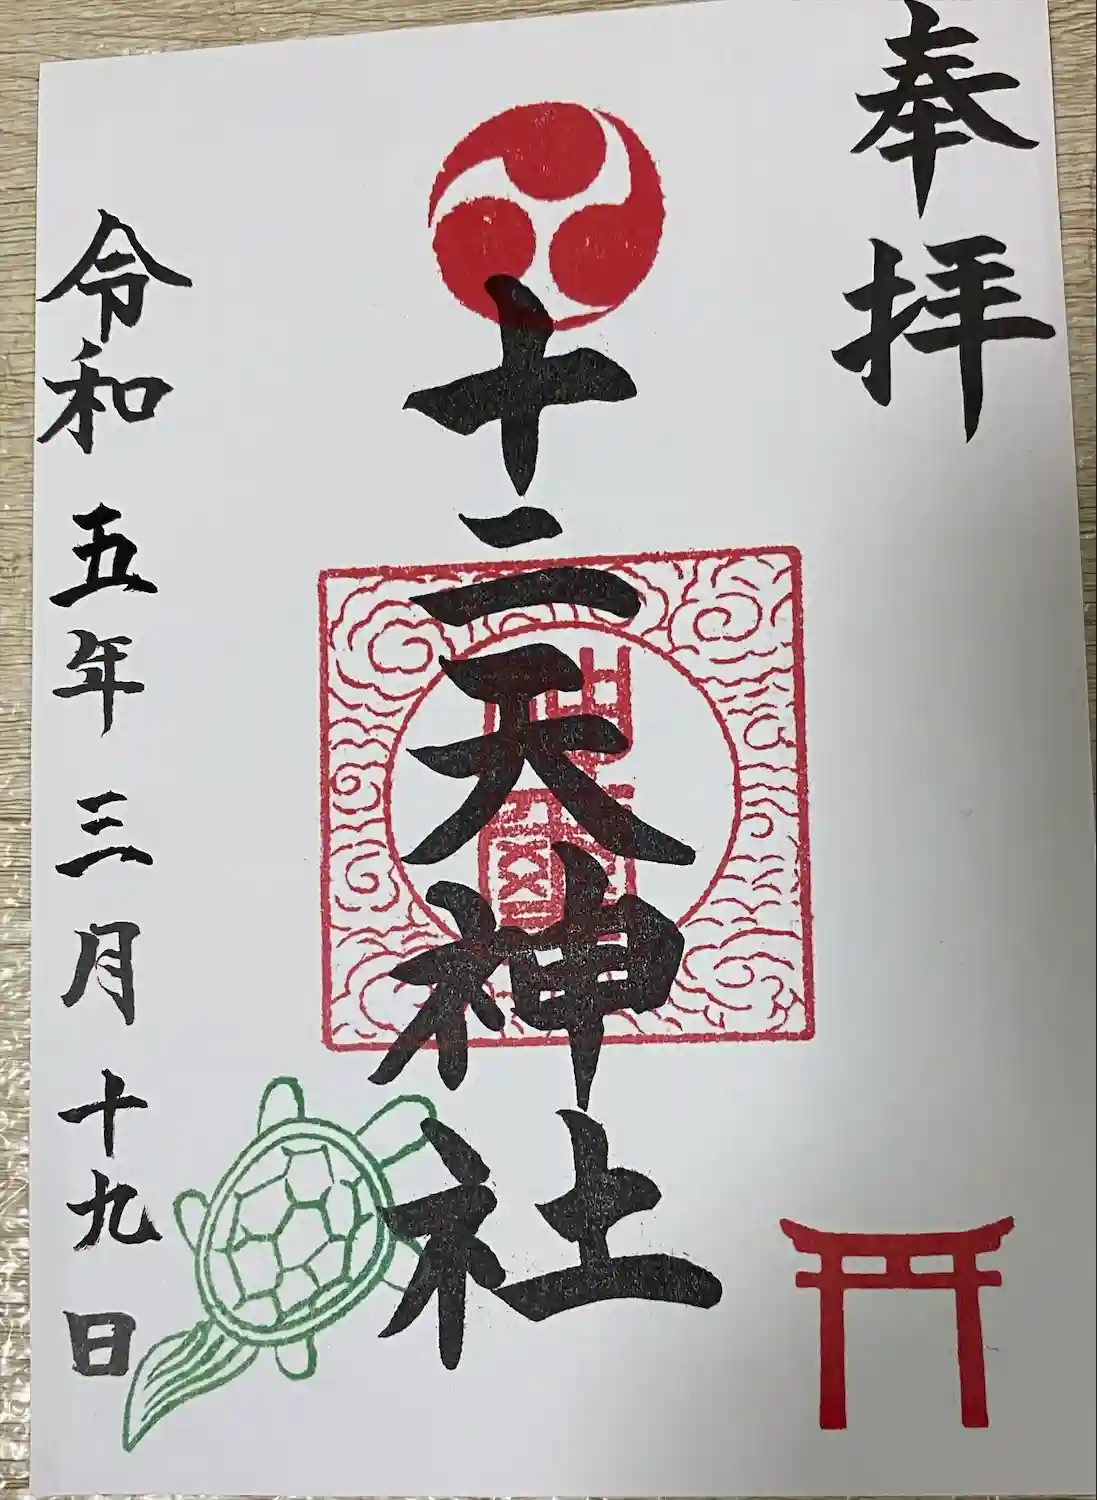 奉拝
十二天神社
令和五年三月十九日